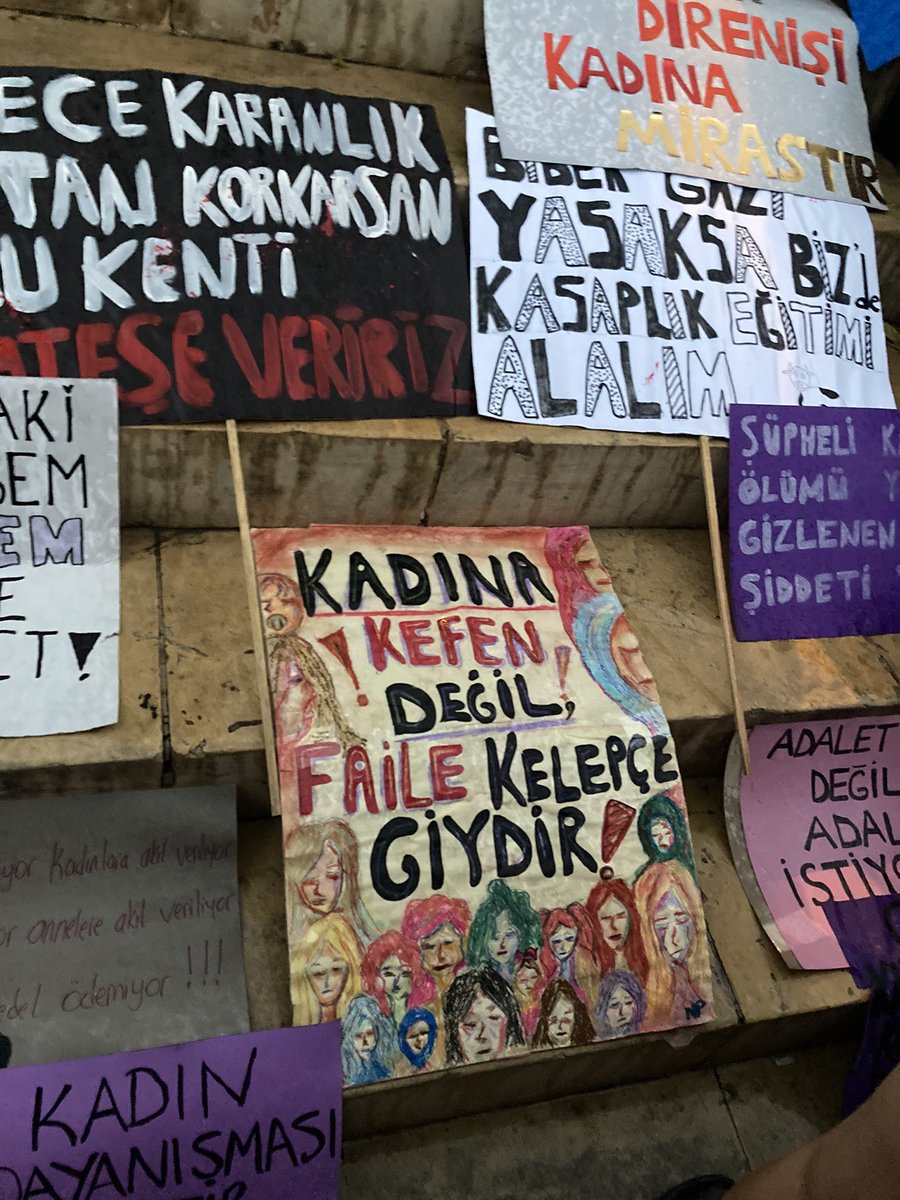 DİRENİŞİ
KADINA
MİRASTIR
ECE KARANLIK
TAN KORKARSAN
U KENTİ
ATEŞE VERİRİZ
BİBER GAZI
YASAKSA BİZ'de
KASAPLIK EĞİTİMİ
ALALIM
AKİ
SEM
EM
E
ET!
ŞÜPHELİ K
ÖLÜMÜ Y
GİZLENEN
ŞİDDETİ
KADINA
!KEFEN!
DEĞİL,
FAİLE KELEPÇE
GİYDİR!
NP
ADALET
DEĞİL
ADAL
İSTİYO
yor kadınlara akıl veriliyor
or annelere akıl veriliyor
edel ödemiyor !!!
KADIN
DAYANIŞMASI